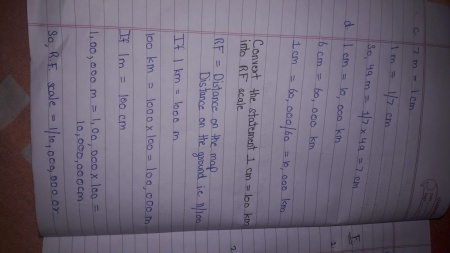 c 7 m = 1 cm
1 m = 1/7 cm
So, 49 m = 1/7 x 49 = 7 cm
d 1 cm = 10,000 km
6 cm = 60,000 km
1 cm = 60,000/60 = 10,000 km
Convert the statement 1 cm = 100 km
into RF scale
RF = Distance on the map
Distance on the ground i.e.
If 1 km = 1000 m
100 km = 1000 x 100 = 100,000 m
If 1 m = 100 cm
1,00,000 m = 1,00,000 x 100 =
10,000,000 cm
So, R.F scale = 1/10,000,000 or